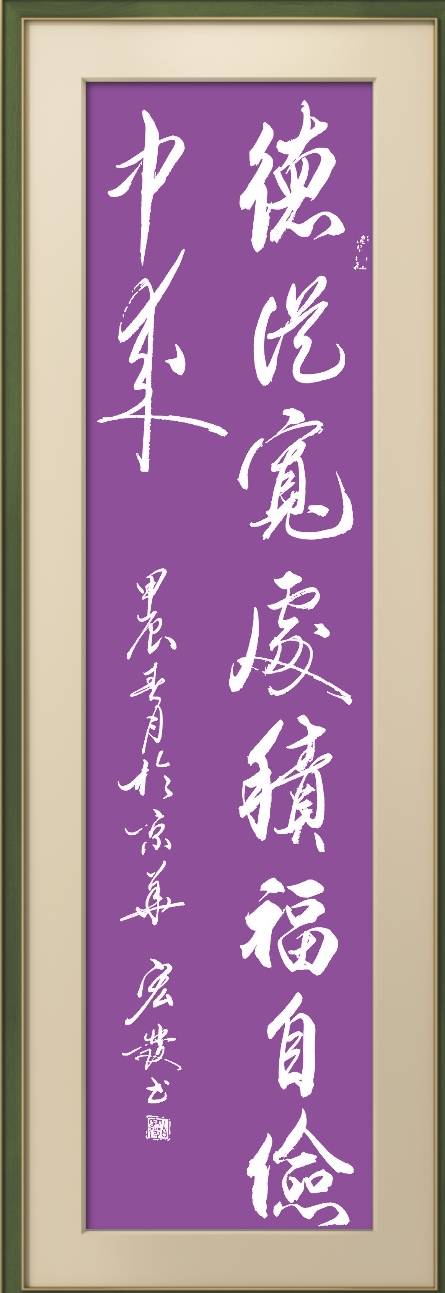 德從寬處積福自儉
中來
甲辰春月於京華 宏發书